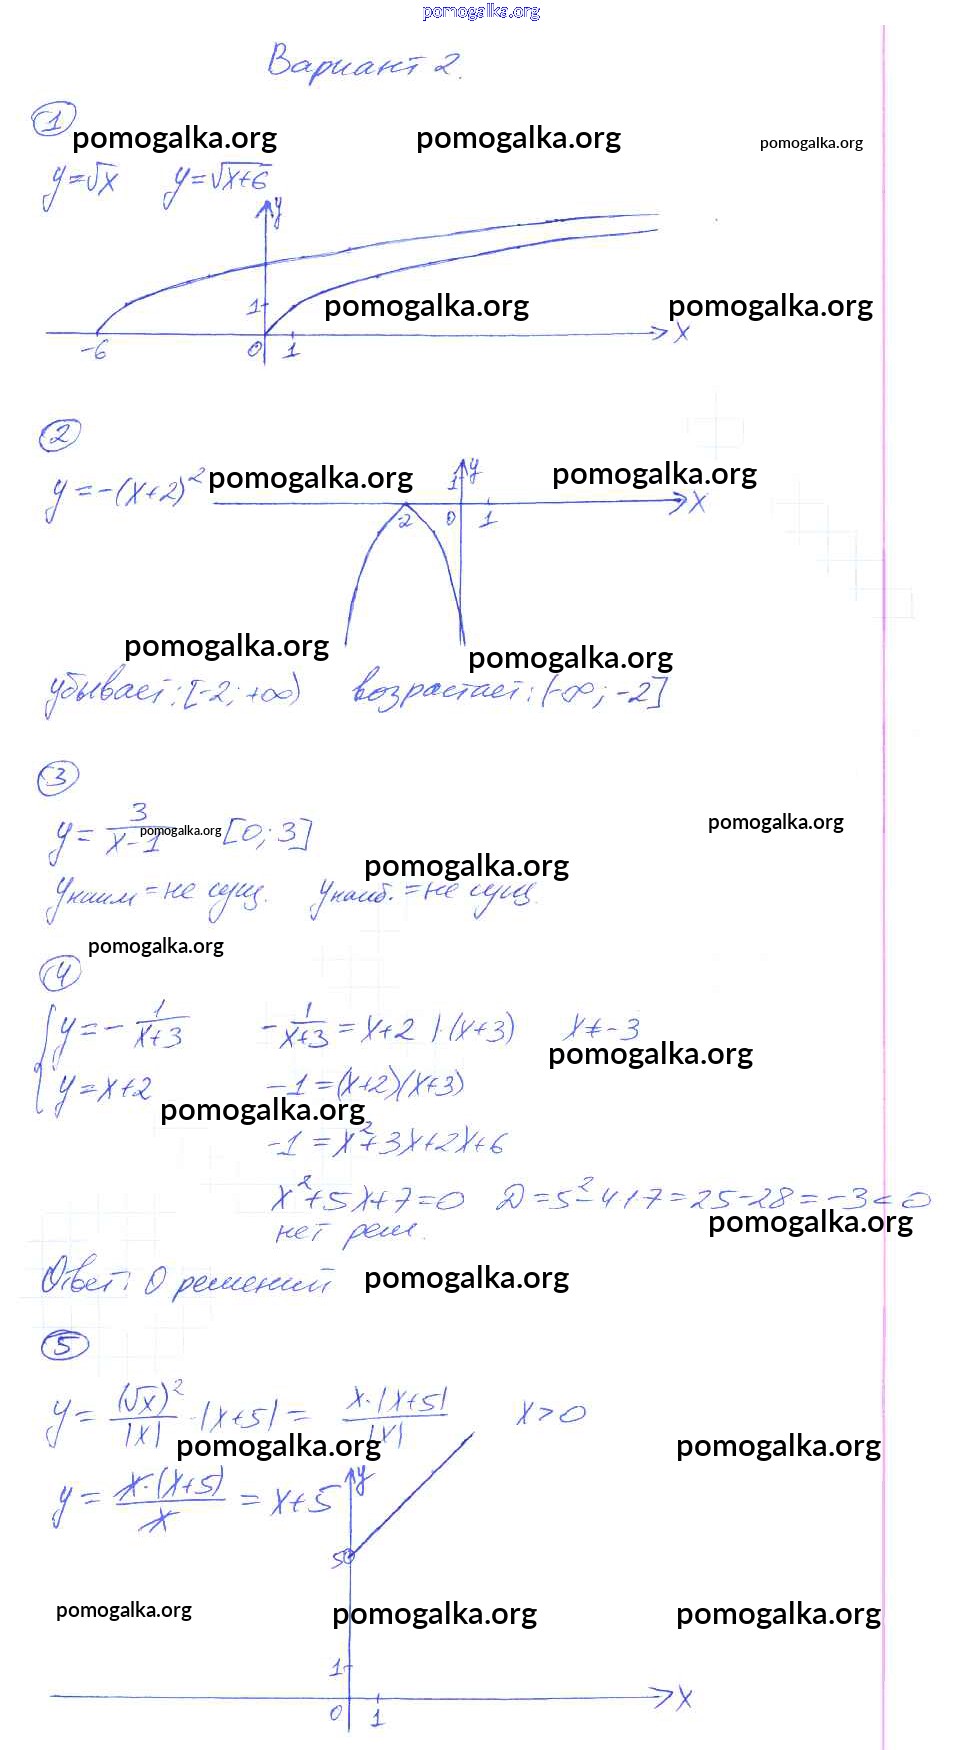 pomogalka.org
Вариант 2.
1
pomogalka.org pomogalka.org pomogalka.org
y=√x y=√x+6
y
1 pomogalka.org pomogalka.org
-6 0 1 x
2
y=-(x+2)² pomogalka.org 1 y pomogalka.org
-2 0 1 x
pomogalka.org pomogalka.org
убывает: [-2; +∞) возрастает: (-∞; -2]
3
y = 3/(x-1) pomogalka.org [0; 3] pomogalka.org
pomogalka.org
yнаим = не сущ. yнаиб. = не сущ.
pomogalka.org
4
{ y = - 1/(x+3) - 1/(x+3) = x+2 |·(x+3) x≠-3
pomogalka.org
y = x+2 -1 = (x+2)(x+3)
pomogalka.org
-1 = x²+3x+2x+6
x²+5x+7=0 D = 5²-4·1·7 = 25-28 = -3 < 0
pomogalka.org
нет реш.
Ответ: 0 решений pomogalka.org
5
y = (√x)²/|x| · |x+5| = x·|x+5|/|x| x>0
pomogalka.org pomogalka.org
y = x·(x+5)/x = x+5 y
5
pomogalka.org pomogalka.org pomogalka.org
1
0 1 x